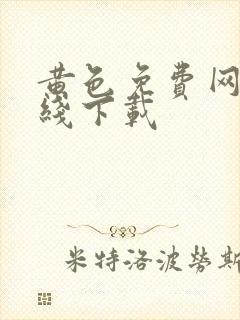 黄色免费网
线下载
米特洛波勞斯